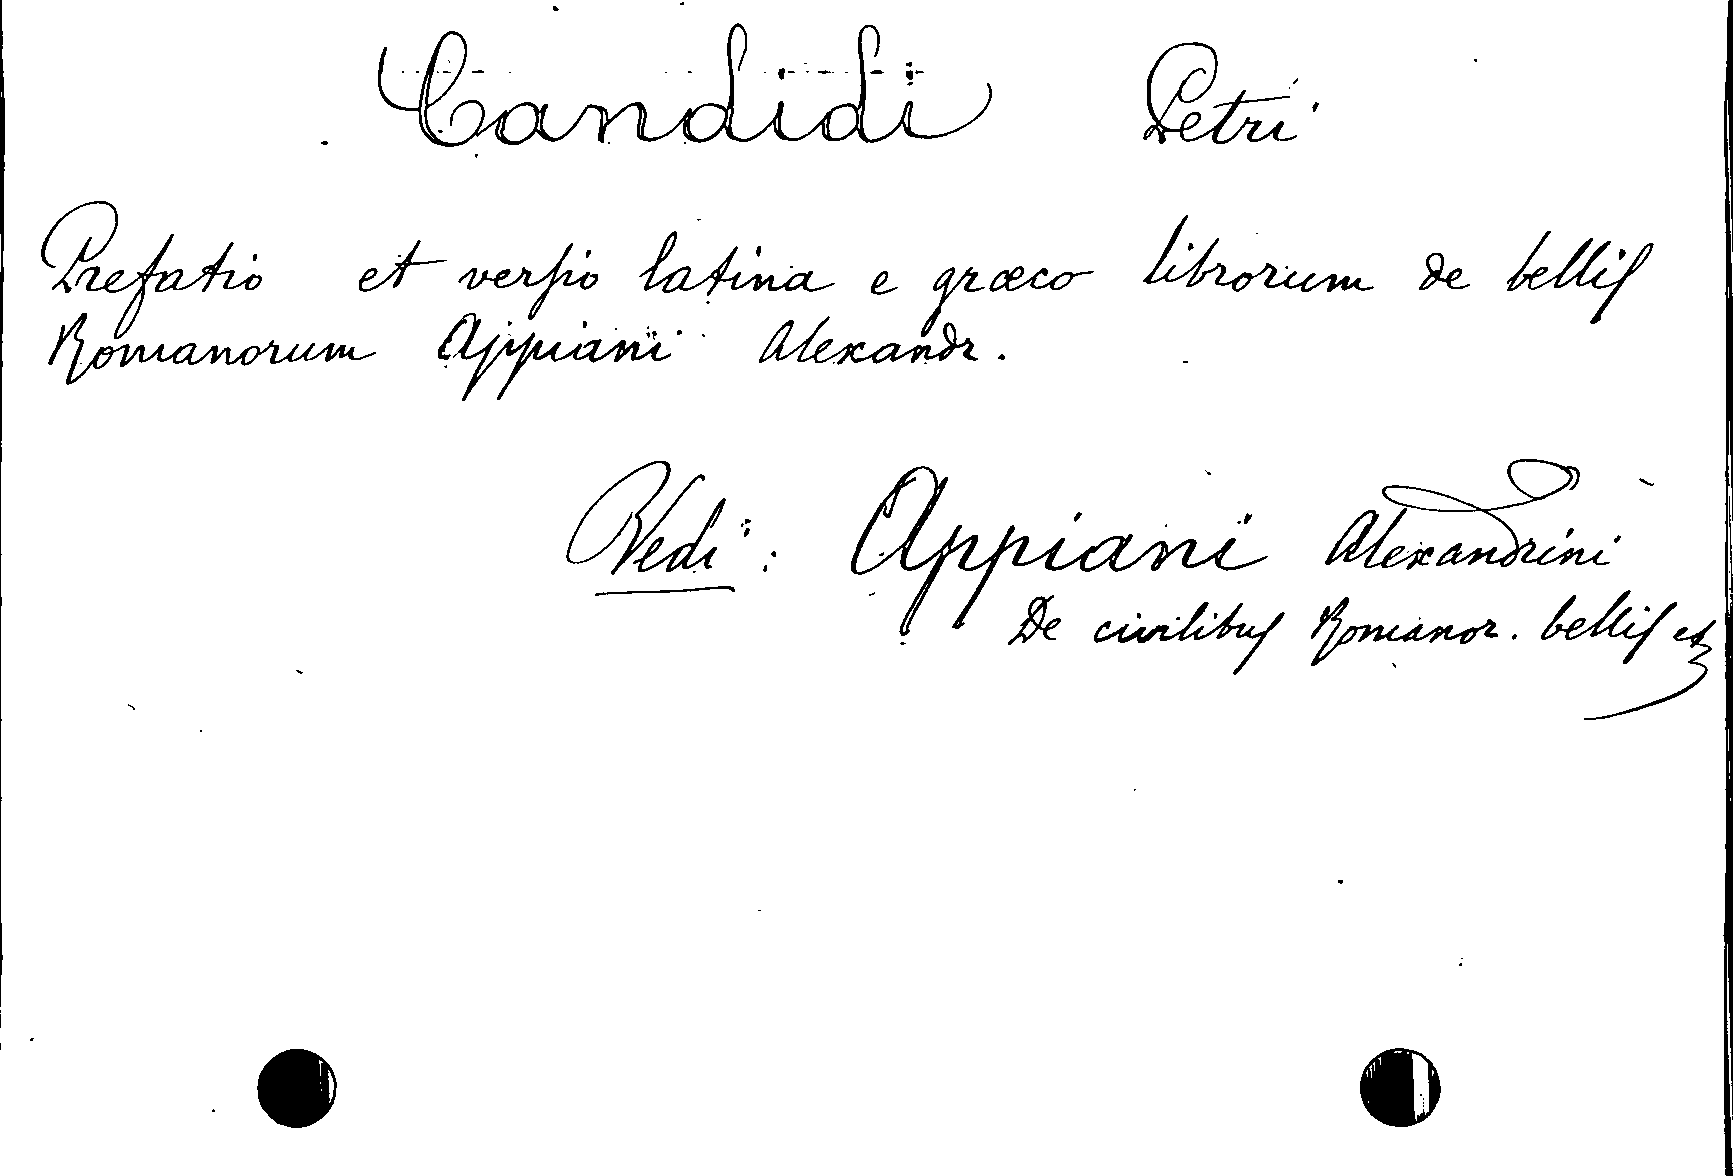 Candidi Petri
Prefatio et verſio latina e græco librorum de bellis
Romanorum Appiani Alexandr.
Vedi: Appiani Alexandrini
De civilibus Romanor. bellis et